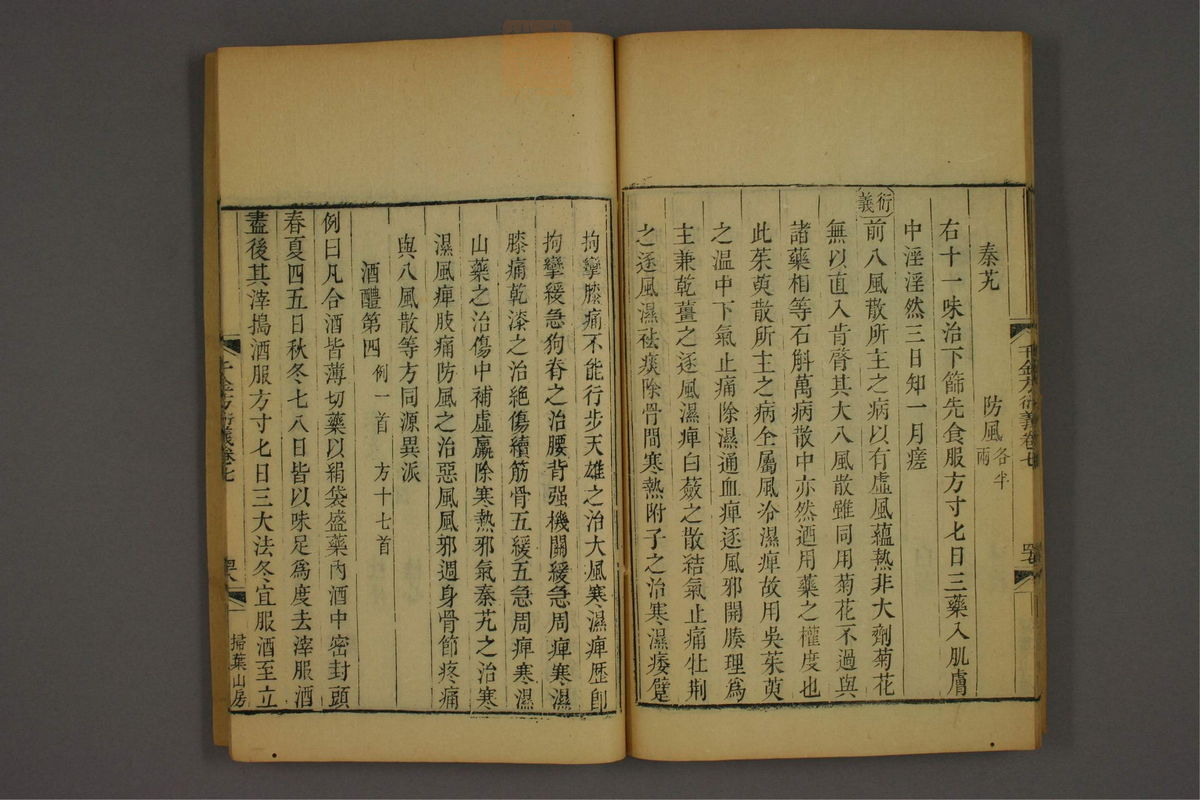 秦艽　防風各半兩
右十一味治下篩先食服方寸七日三藥入肌膚
中淫淫然三日知一月瘥
衍義
前八風散所主之病以有虛風蘊熱非大劑菊花
無以直入肯膂其大八風散雖同用菊花不過與
諸藥相等石斛萬病散中亦然迺用藥之權度也
此茱萸散所主之病全屬風冷濕痺故用吳茱萸
之温中下氣止痛除濕通血痺逐風邪開腠理為
主兼乾薑之逐風濕痺白蘞之散結氣止痛牡荆
之逐風濕祛痰除骨間寒熱附子之治寒濕痿躄
千金方衍義卷七
拘攣膝痛不能行步天雄之治大風寒濕痺歷節
拘攣緩急狗脊之治腰背强機關緩急周痺寒濕
膝痛乾漆之治絶傷續筋骨五緩五急周痺寒濕
山藥之治傷中補虛羸除寒熱邪氣秦艽之治寒
濕風痺肢痛防風之治惡風風邪週身骨節疼痛
與八風散等方同源異派
酒醴第四　例一首　方十七首
例曰凡合酒皆薄切藥以絹袋盛藥內酒中密封頭
春夏四五日秋冬七八日皆以味足為度去滓服酒
盡後其滓搗酒服方寸七日三大法冬宜服酒至立
千金方衍義卷七
掃葉山房